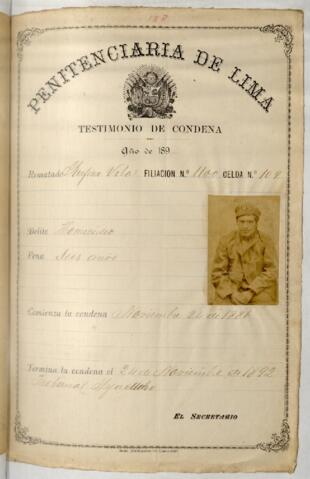 187
PENITENCIARIA DE LIMA
TESTIMONIO DE CONDENA
Año de 189
Rematado Rufino Vela FILIACION N.º 1100 CELDA N.º 109
Delito Homicidio
Pena Seis años
Comienza la condena Noviembre 24 de 1886
Termina la condena el 24 de Noviembre de 1892
Tribunal Ayacucho
EL SECRETARIO